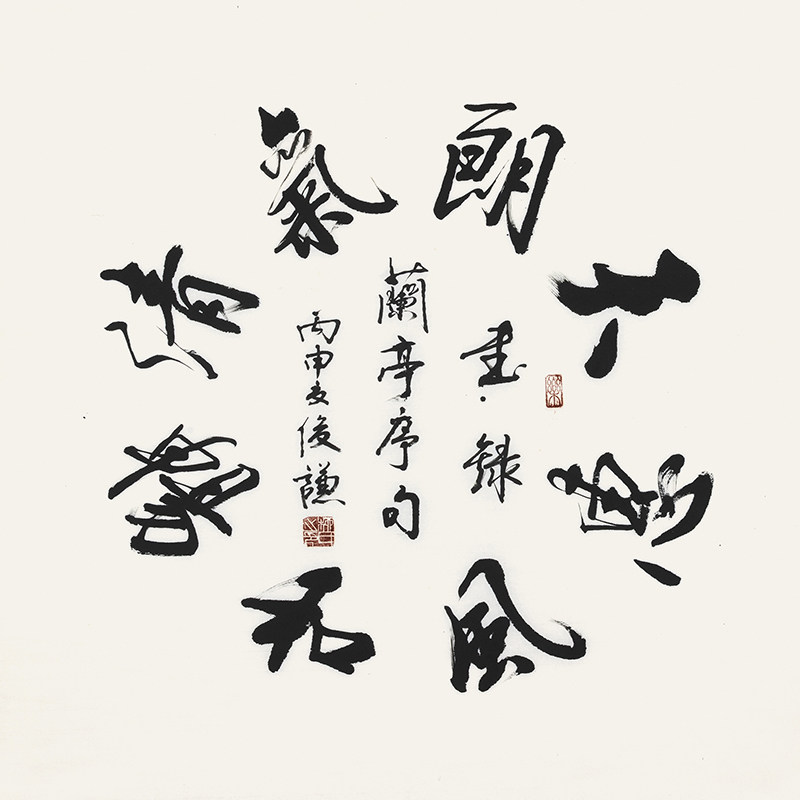 天朗氣清
惠風和暢
書録
蘭亭序句
丙申夏俊謙